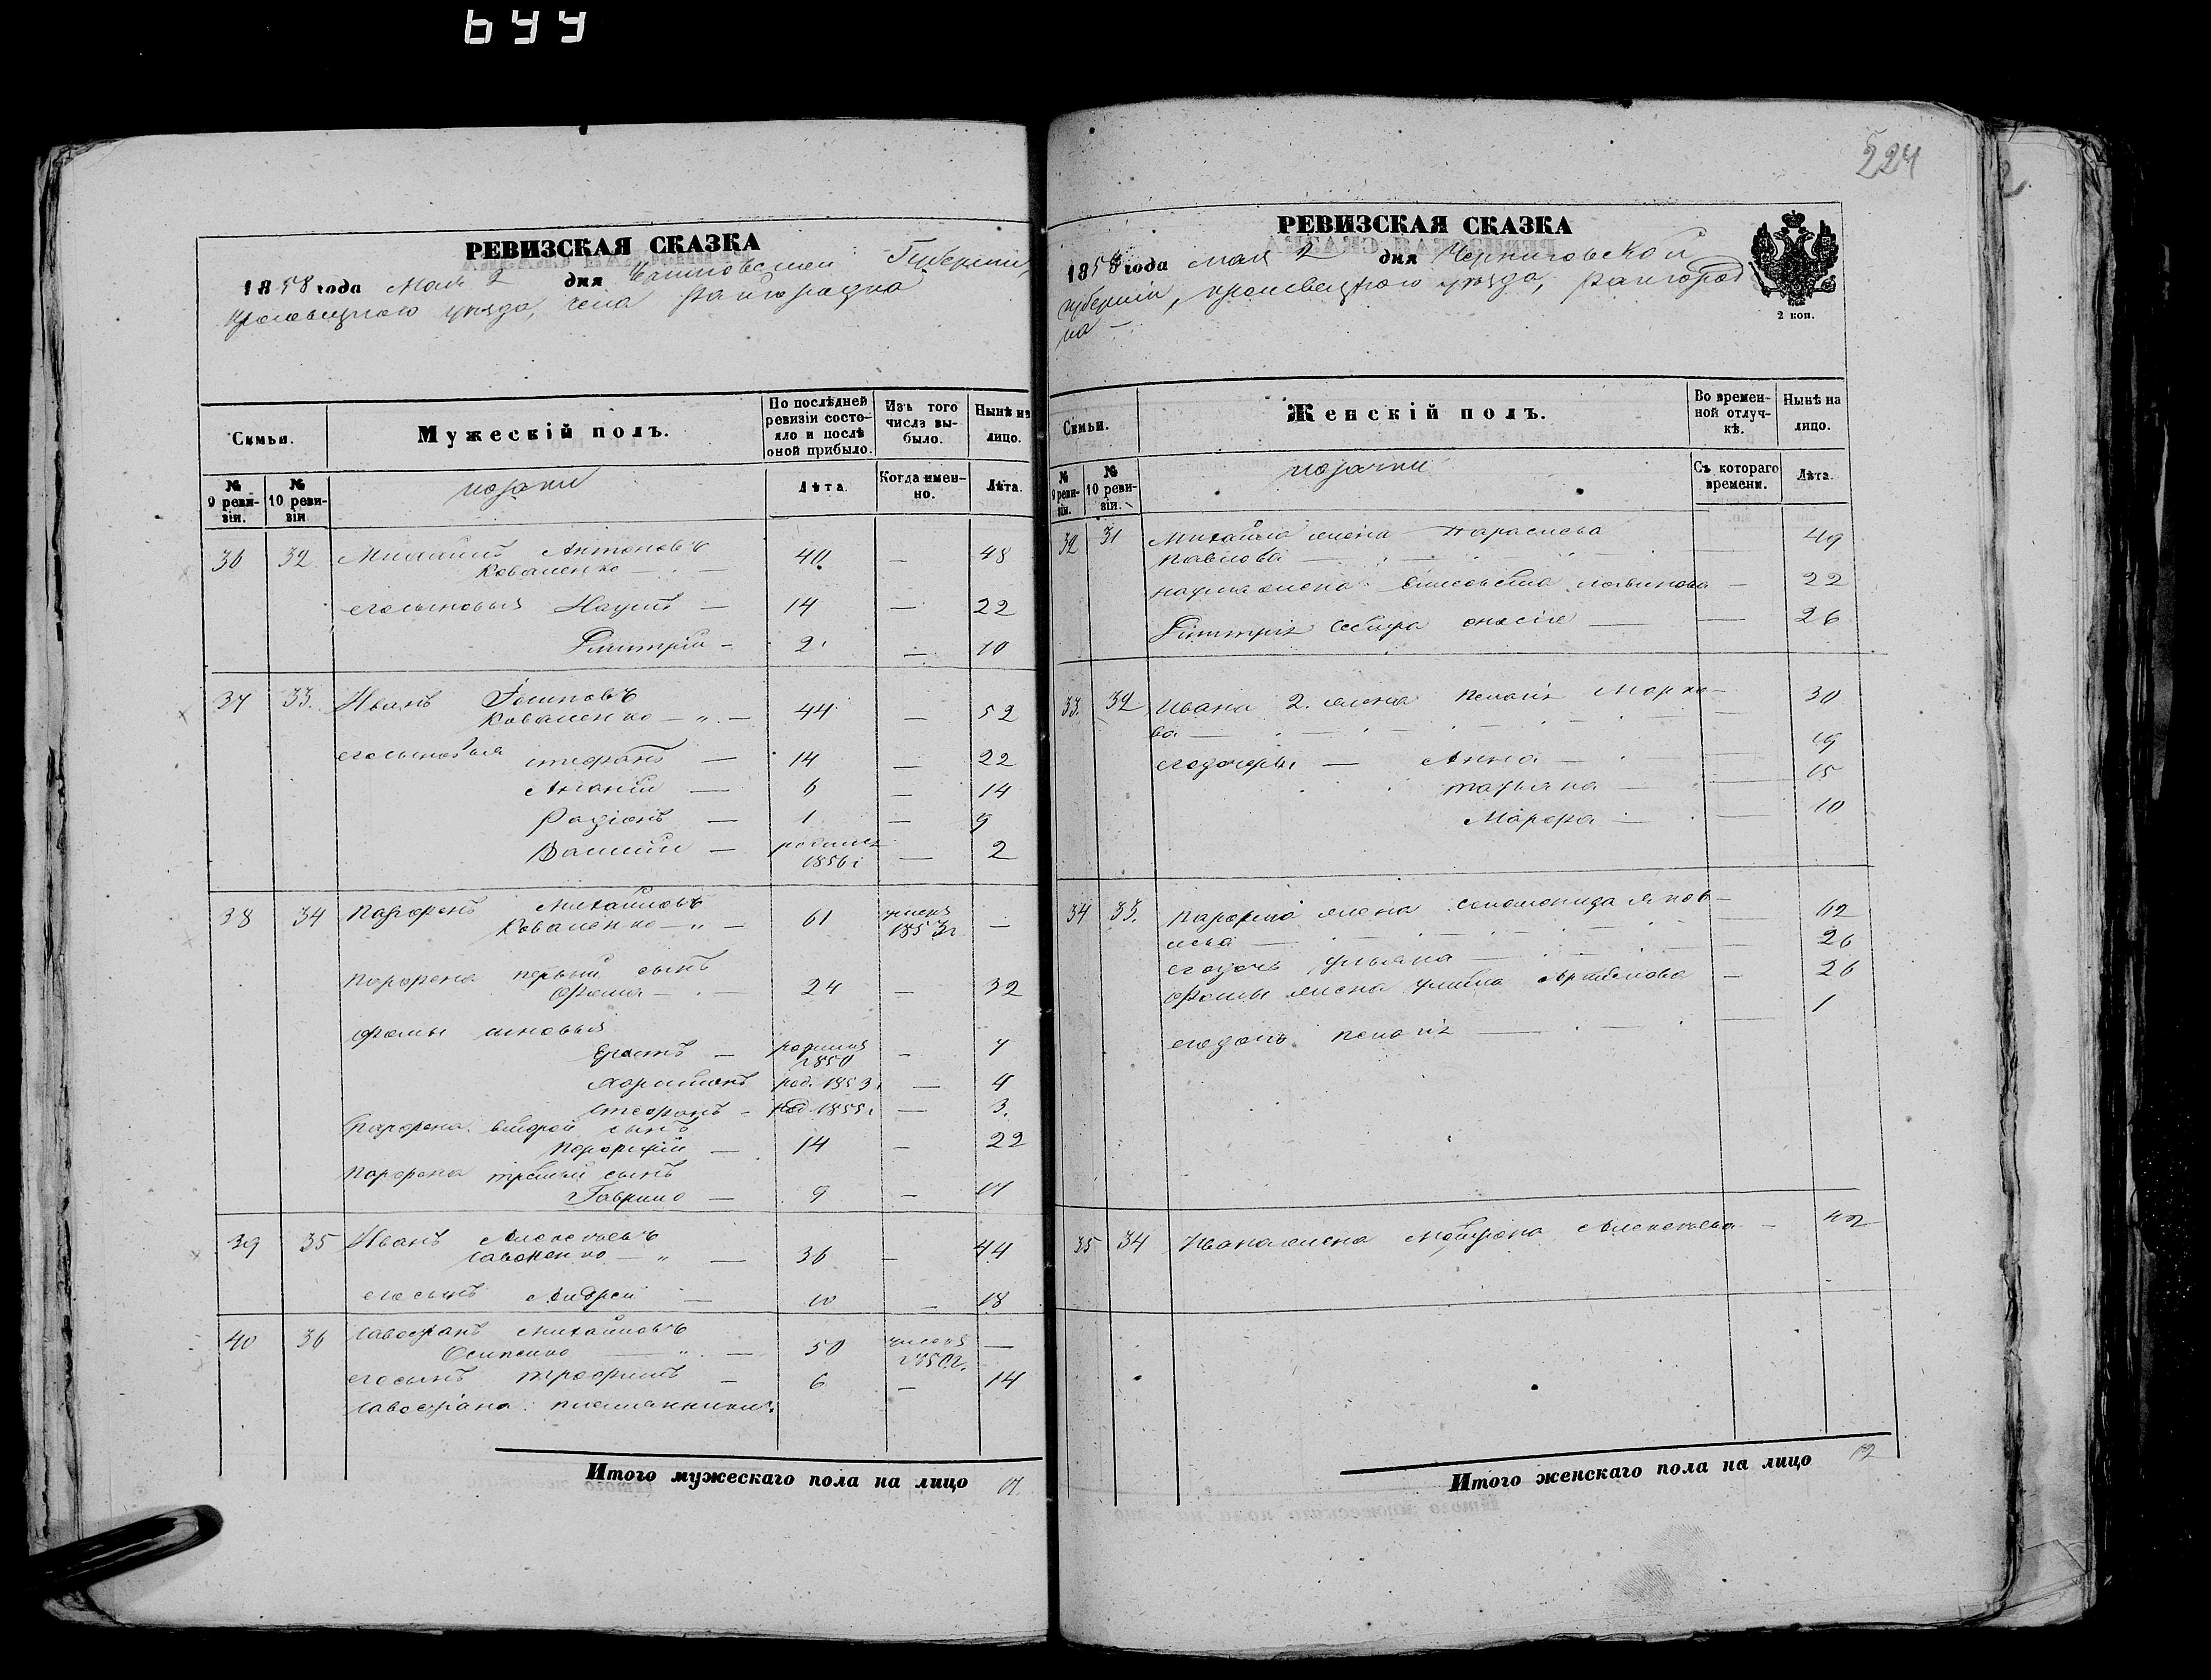 644
224
РЕВИЗСКАЯ СКАЗКА
1858 года Мая 2 дня Черниговской Губернии,
Кролевецкого уезда, села Райгородка
Семьи.
Мужескій полъ.
По послѣдней ревизіи состояло и послѣ оной прибыло.
Изъ того числа выбыло.
Нынѣ на лицо.
№ 9 ревизіи.
№ 10 ревизіи
козаки
Лѣта.
Когда именно.
Лѣта.
36 32 Михаилъ Антоновъ
Коваленко — 40 — 48
его сыновья Наумъ — 14 — 22
Димитрій — 2 — 10
37 33. Иванъ Осиповъ
Коваленко — „ — 44 — 52
его сыновья Стефанъ — 14 — 22
Ананій — 6 — 14
Радіонъ — 1 — 9
Василій — родился 1856 г — 2
38 34 Парфенъ Михайловъ
Коваленко — „ — 61 умеръ 1853 г —
Парфена первый сынъ
Фома — 24 — 32
Фомы сыновья
родился 1850 — 7
Харитонъ род. 1853 г — 4
Стефанъ — род. 1855 г — 3.
Парфена второй сынъ
Порфирій — 14 — 22
Парфена третий сынъ
Гаврило — 9 — 17
39 35 Иванъ Алексеевъ
Савченко — „ — 36 — 44
его сынъ Андрей — 10 — 18
40 36 Савостіанъ Михайловъ
Осипенко — „ — 50 умеръ 1850 г. —
его сынъ Трофимъ — 6 — 14
Савостіана племянники:
Итого мужескаго пола на лицо 17
РЕВИЗСКАЯ СКАЗКА
1858 года мая 2 дня Черниговской
губерніи, Кролевецкого уезда, Райгород
ка —
2 коп.
Семьи.
Женскій полъ.
Во временной отлучкѣ.
Нынѣ на лицо.
№ 9 ревизіи.
№ 10 ревизіи.
козачки
Съ котораго времени.
Лѣта.
32 31 Михайла жена Параскева
Павлова — 49
Наума жена — 22
Димитрія — 26
33. 32 Ивана 2. жена Пелагія Марко-
ва — 30
его дочери — Анна — 19
Татьяна — 15
Марфа — 10
34 33. Парфена жена Соломонида Яков-
лева — 62
его дочь Ульяна — 26
Фомы жена — 26
его дочь Пелагія — 1
35 34 Ивана жена Матрона Алексеева — 42
Итого женскаго пола на лицо 12